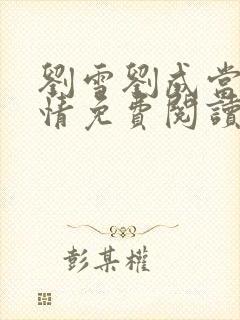 劉雪劉成當
情免費閱讀
彭某權